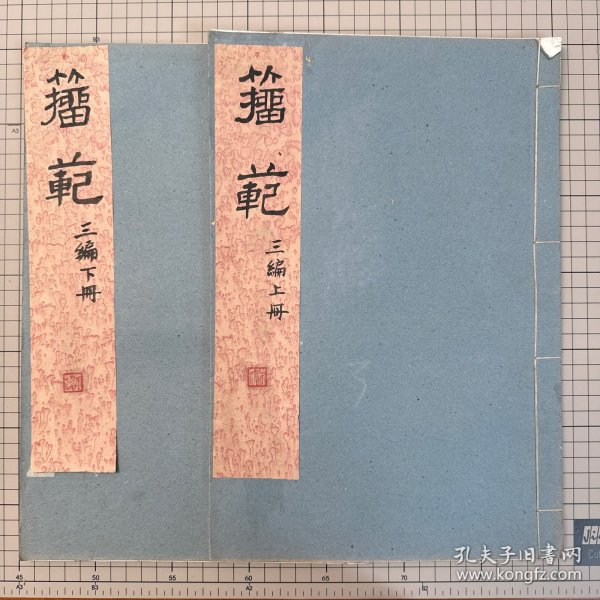 籀範
三編上冊
籀範
三編下冊
孔夫子旧书网
www.kongfz.com
45
50
55
60
65
70
A3
B3
B2
A3